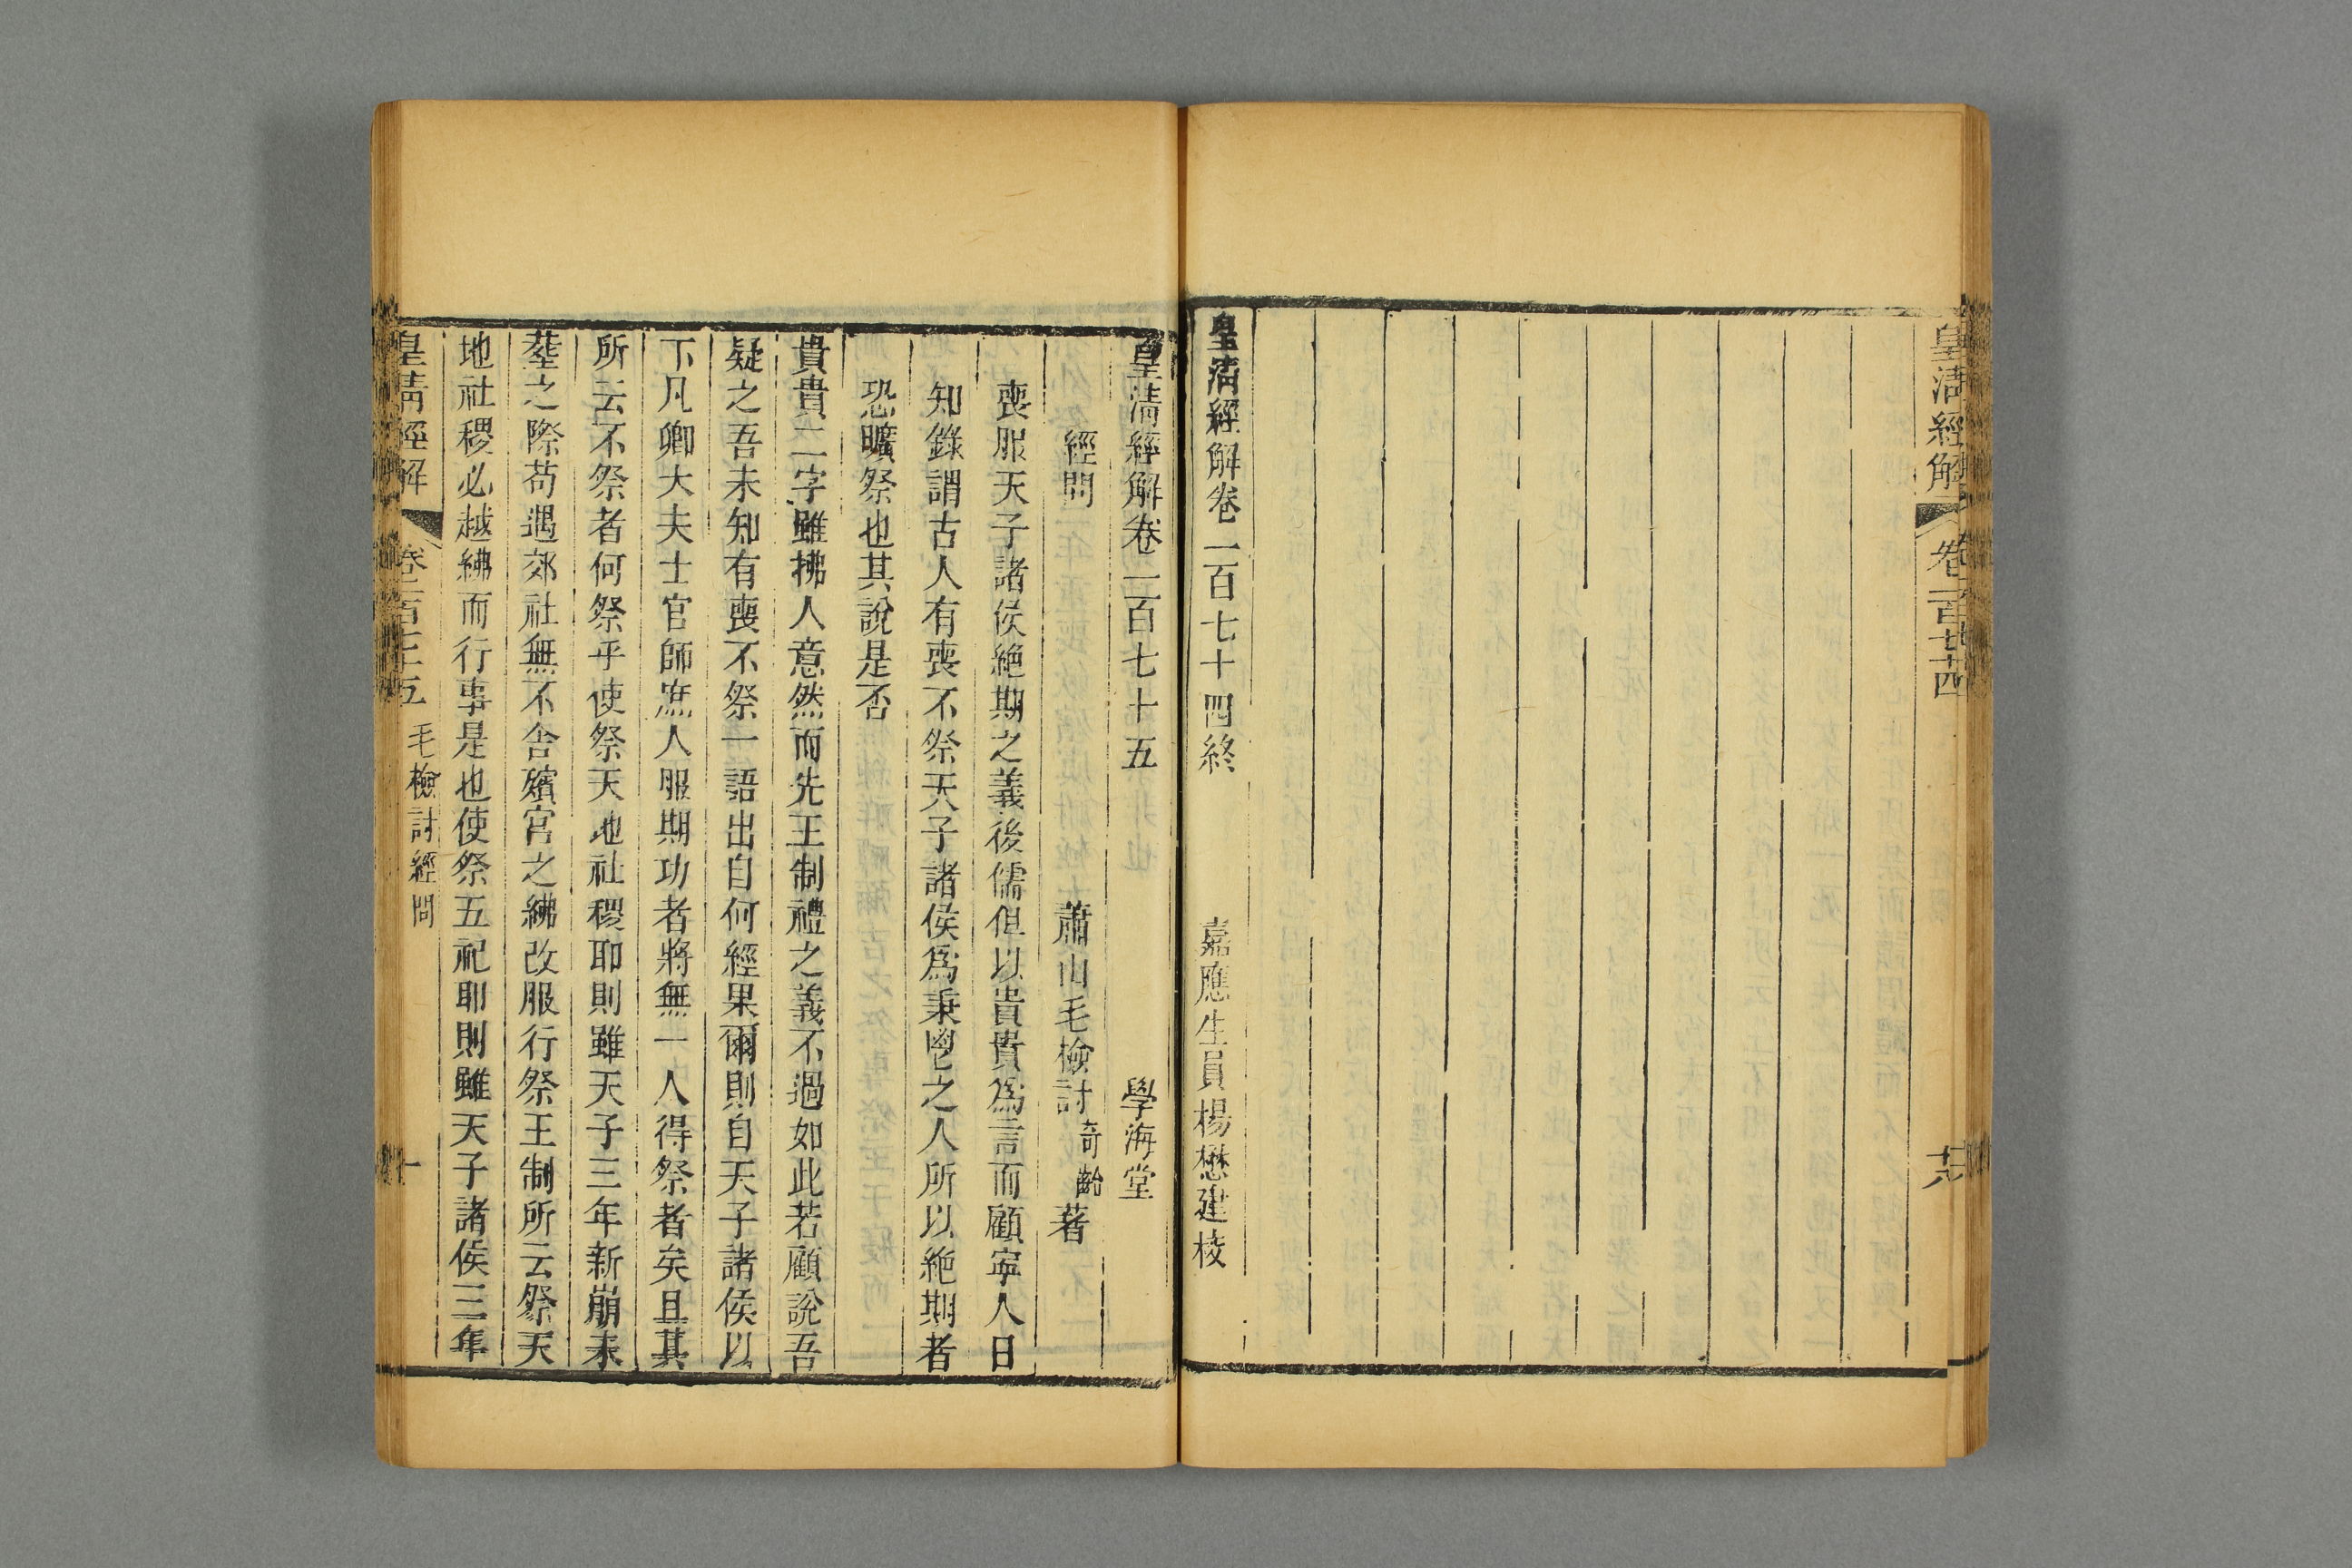 皇清經解
卷一百七十四
十六
皇清經解卷一百七十四終
嘉應生員楊懋建校
皇清經解卷一百七十五
學海堂
經問
蕭山毛檢討奇齡著
喪服天子諸侯絶期之義後儒但以貴貴爲言而顧寧人日
知錄謂古人有喪不祭天子諸侯爲秉鬯之人所以絶期者
恐曠祭也其說是否
貴貴二字雖拂人意然而先王制禮之義不過如此若顧說吾
疑之吾未知有喪不祭一語出自何經果爾則自天子諸侯以
下凡卿大夫士官師庶人服期功者將無一人得祭者矣且其
所云不祭者何祭乎使祭天地社稷耶則雖天子三年新崩未
塟之際苟遇郊社無不舍殯宮之紼改服行祭王制所云祭天
地社稷必越紼而行事是也使祭五祀耶則雖天子諸侯三年
皇清經解
卷一百七十五
毛檢討經問
一